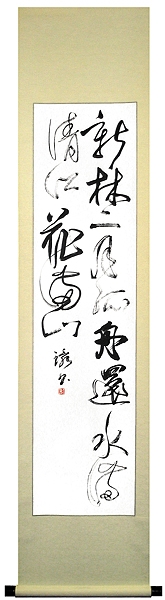 新林二月孤舟還水滿
清江花滿山